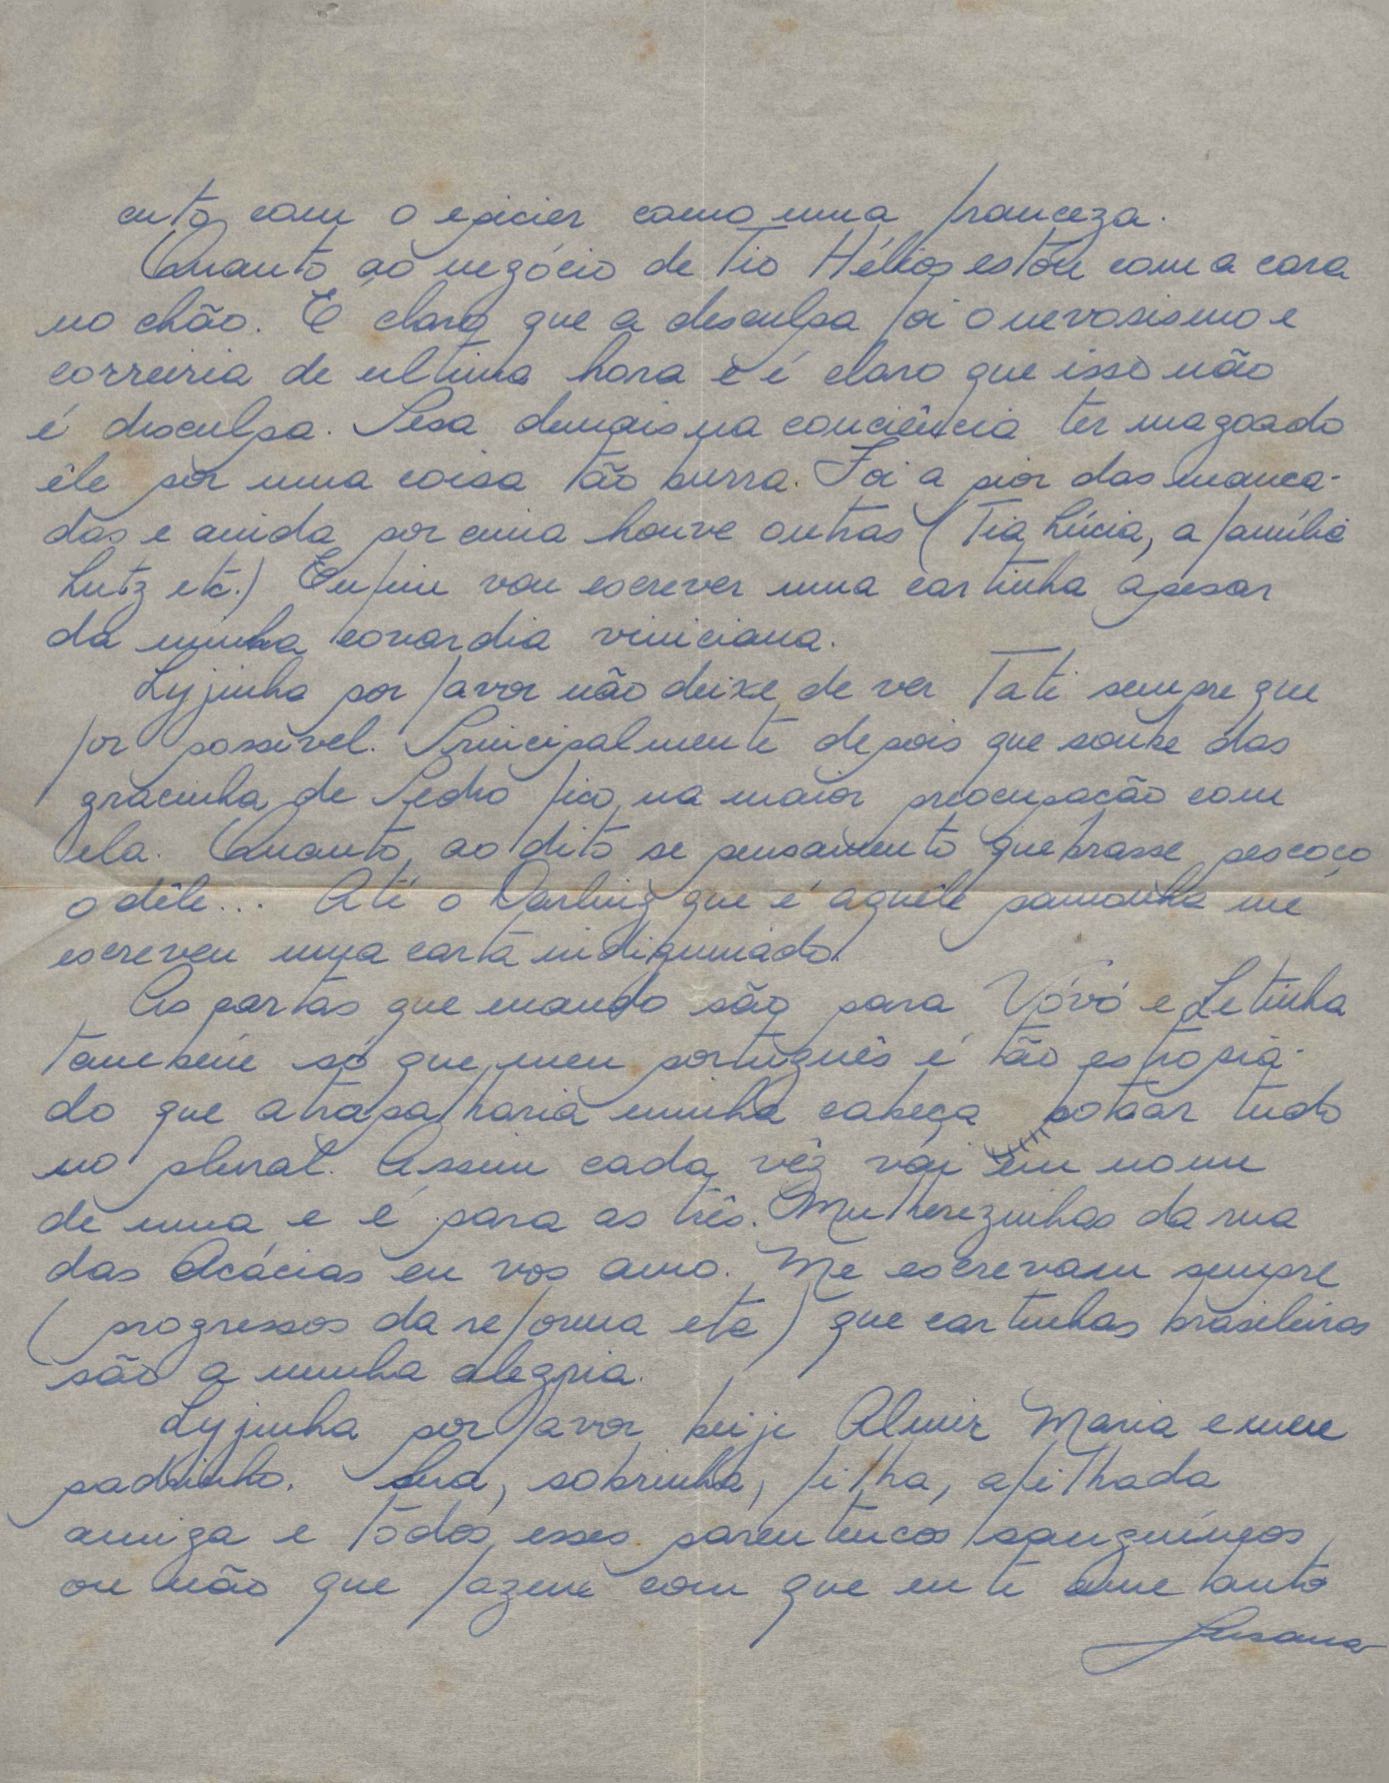 cuto com o epicier como uma franceza.
Quanto ao negócio de tio Hélios estou com a cara
no chão. É claro que a desculpa foi o nevosismo e
correiria de ultima hora e é claro que isso não
é disculpa. Pesa demais na conciência ter magoado
êle por uma coisa tão burra. Foi a pior das manca-
das e ainda por cima houve outras (Tia Lúcia, a família
Lutz etc.) Enfim vou escrever uma cartinha apesar
da minha covardia viniciana.
Lyjinha por favor não deixe de ver Tati sempre que
for possivel. Principalmente depois que soube das
gracinha de Pedro fico na maior preocupação com
ela. Quanto ao dito se pensamento quebrasse pescoço
o dêle... Até o Darling que é aquêle pamonha me
escreveu uma carta indiguinado.
As cartas que mando são para Vóvó e Letinha
tambem só que meu português é tão estropia-
do que atrapalharia minha cabeça botar tudo
no plural. Assim cada vêz vai em nome
de uma e é para as três. Mulherezinhas da rua
das Acácias eu vos amo. Me escrevam sempre
(progressos da reforma etc) que cartinhas brasileiras
são a minha alegria.
Lyjinha por favor beije Almir Maria e meu
padrinho. Sua, sobrinha, filha, afilhada
amiga e todos esses parentescos sanguíneos
ou não que fazem com que eu te ame tanto
Susana